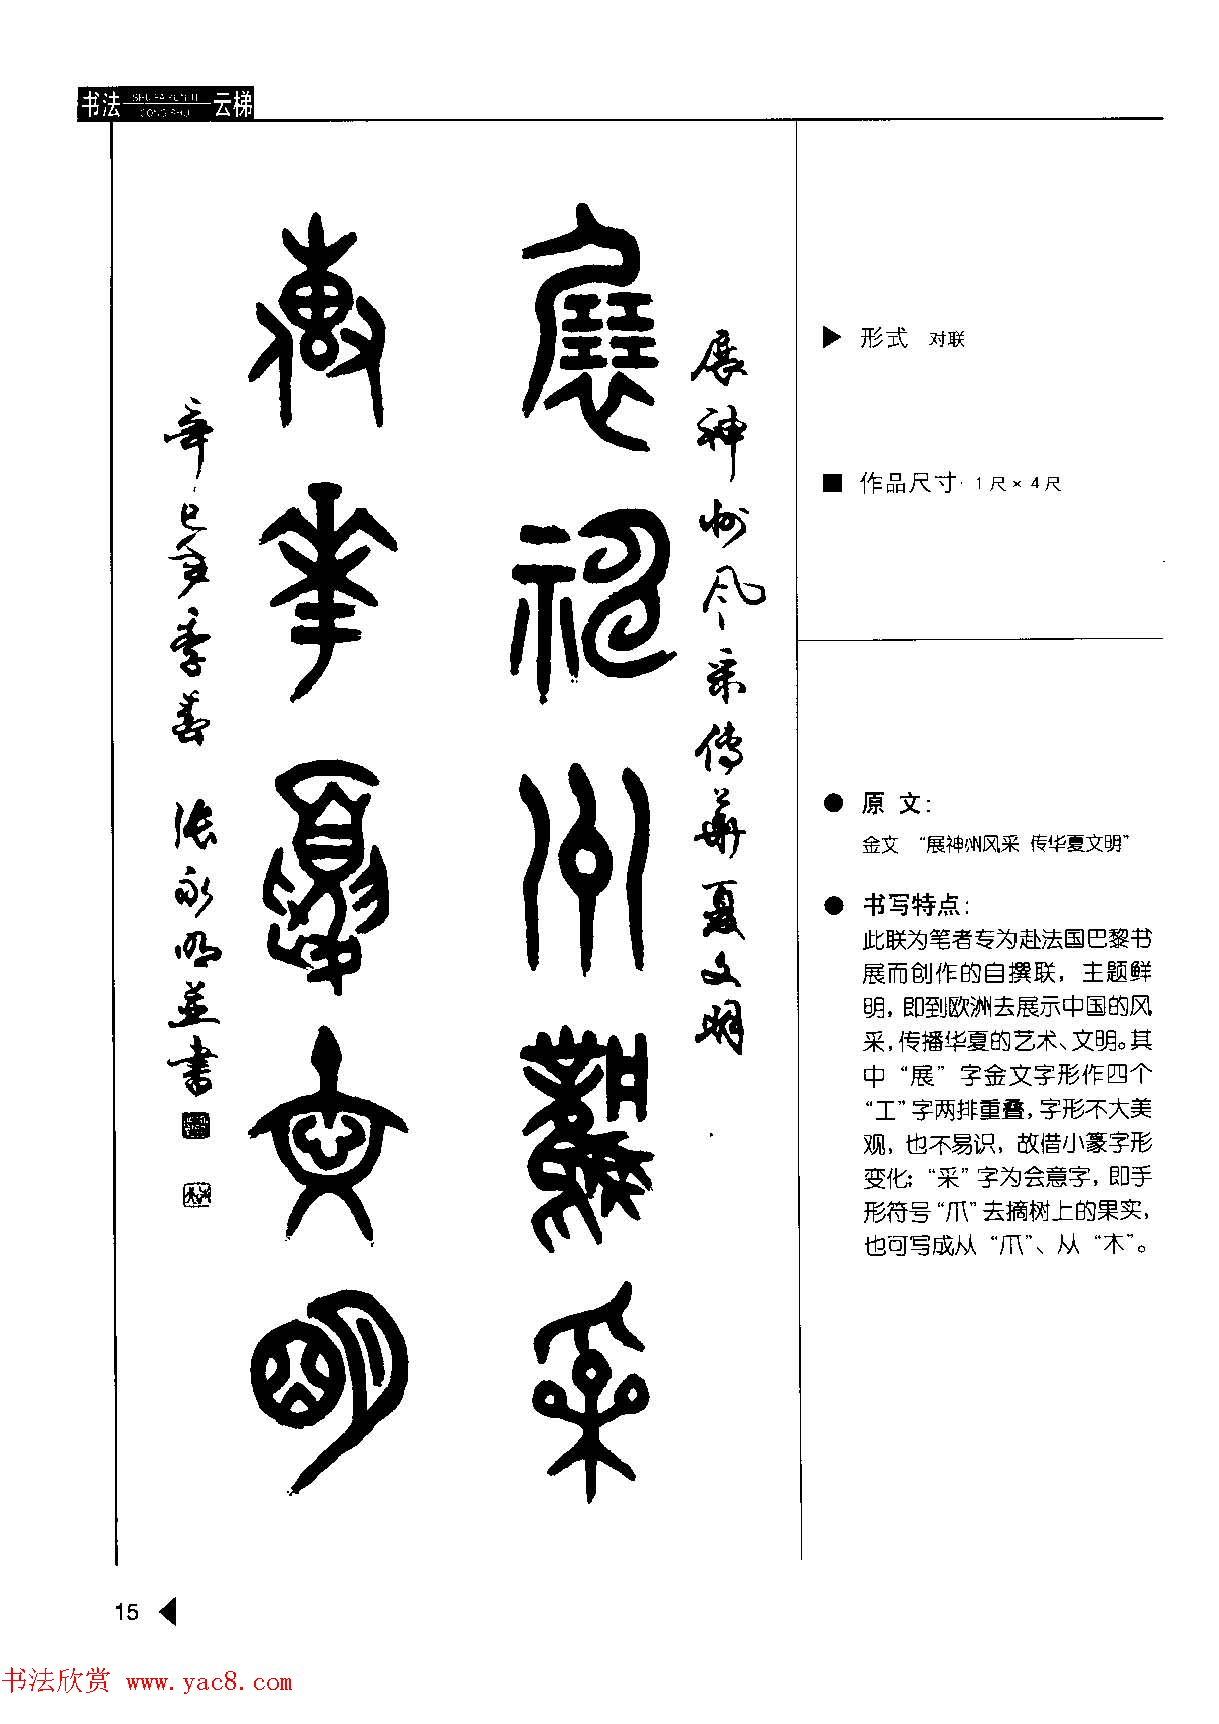 书法 SHU FA YUN TI CONG SHU 云梯
展神州风采
传华夏文明
展神州风采傳華夏文明
辛巳年季春 张永明並書
▶ 形式 对联
■ 作品尺寸 1尺×4尺
● 原文：
金文 “展神州风采 传华夏文明”
● 书写特点：
此联为笔者专为赴法国巴黎书
展而创作的自撰联，主题鲜
明，即到欧洲去展示中国的风
采，传播华夏的艺术、文明。其
中“展”字金文字形作四个
“工”字两排重叠，字形不大美
观，也不易识，故借小篆字形
变化；“采”字为会意字，即手
形符号“爪”去摘树上的果实，
也可写成从“爪”、从“木”。
15
书法欣赏 www.yac8.com